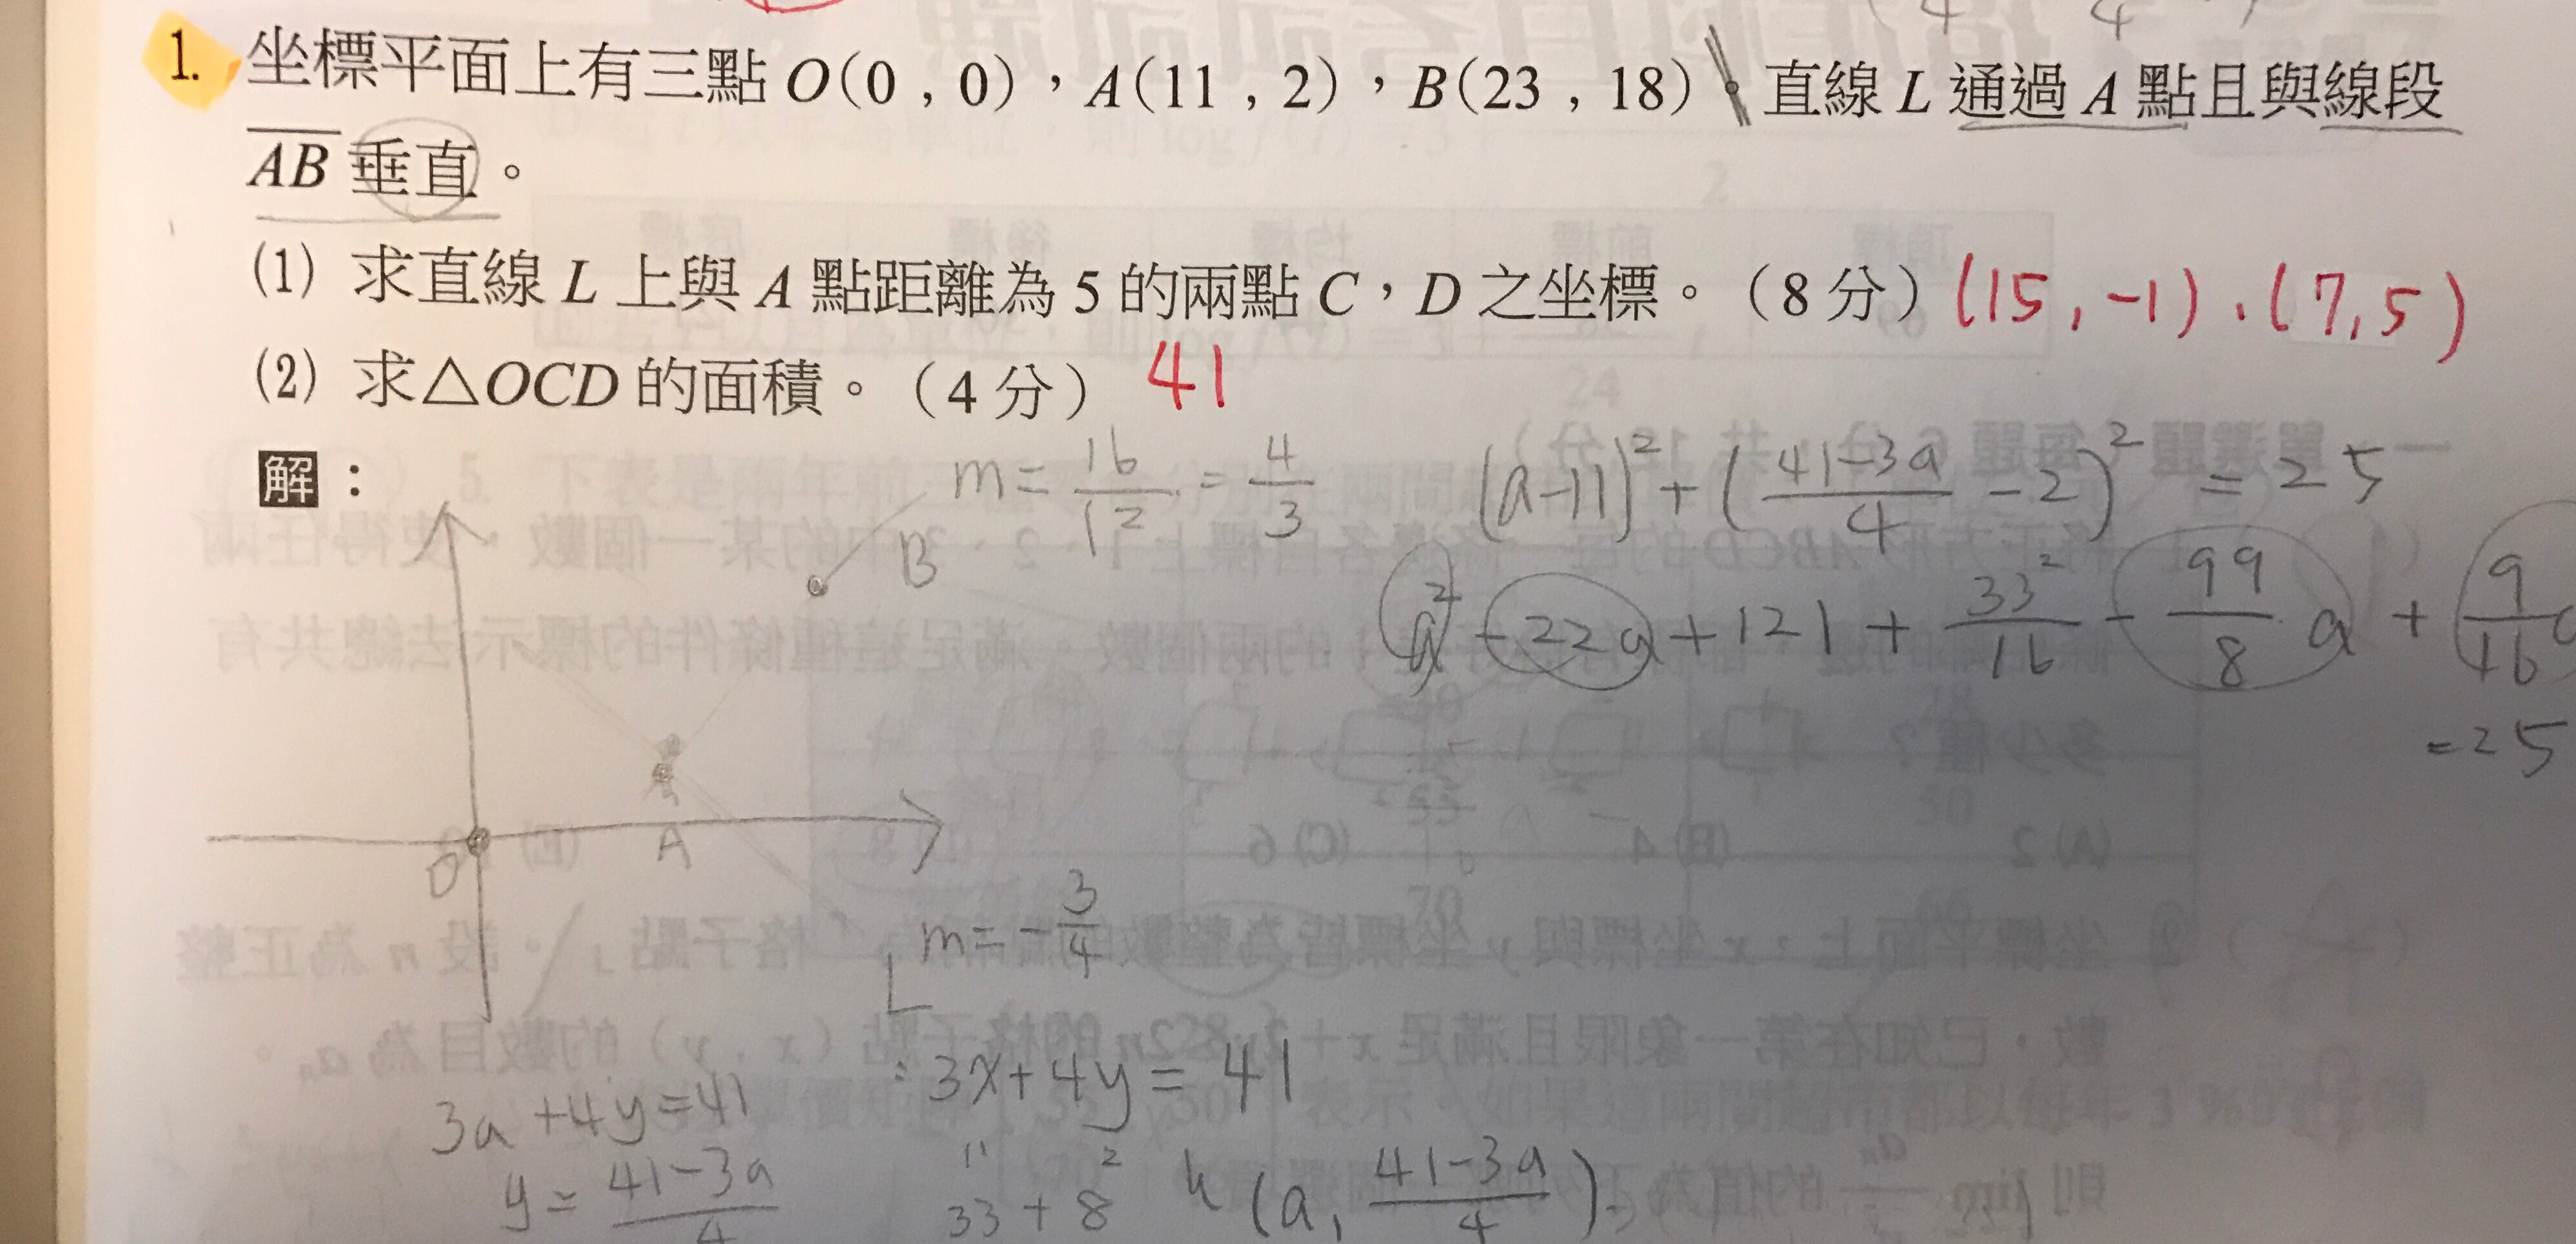 1. 坐標平面上有三點 O(0 , 0),A(11 , 2),B(23 , 18),直線 L 通過 A 點且與線段
AB 垂直。
(1) 求直線 L 上與 A 點距離為 5 的兩點 C,D 之坐標。(8 分) (15, -1)、(7, 5)
(2) 求△OCD 的面積。(4 分) 41
解:
m = 16/12 = 4/3
(a-11)² + (41-3a/4 - 2)² = 25
B
a² - 22a + 121 + 33²/16 - 99/8 a + 9/16
= 25
O A
m = -3/4
L
: 3x + 4y = 41
3a + 4y = 41
11 2
y = 41-3a/4
33 + 8
(a, 41-3a/4)